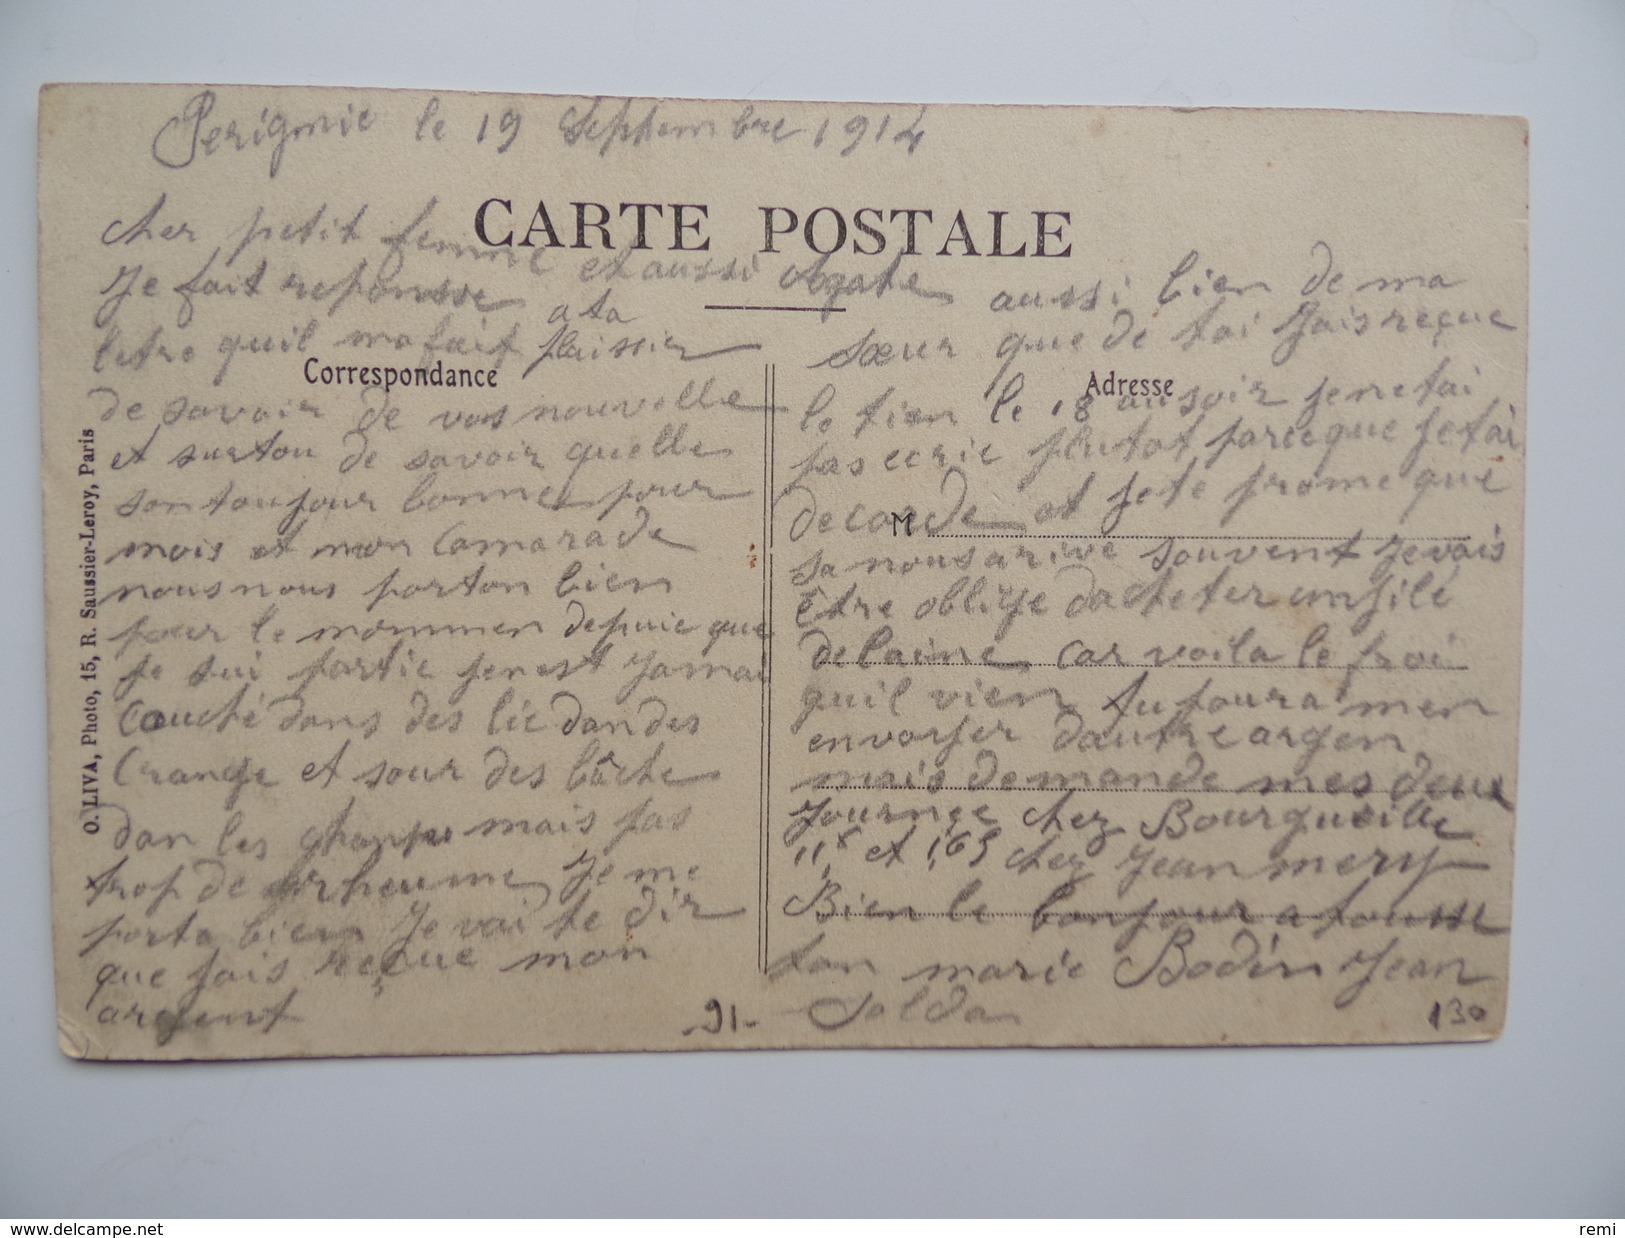 Perignie le 19 Septembre 1914
CARTE POSTALE
cher petit femme et aussi Agate
Je fait reponsse a ta
letre quil ma fait plaissier
Correspondance
de savoir de vos nouvelle
et surtou de savoir quelle
son toujour bonne pour
mois et mon Camarade
nous nous porton bien
pour le mommen depuie que
je sui partie jenest Jamai
Couché dans des lic dandes
Crange et sour des bâche
dan les champs mais pas
trop de rheume Je me
porta bien Je vai te dir
que jais reçue mon
argent
aussi bien de ma
sœur que de toi Jais reçue
Adresse
le tien le 18 au soir jenetai
pas ecrie plutot parce que jetai
de garde et je te prome que
M
sa nous arive souvent Je vais
être oblige dacheter un filé
de laine car voila le froi
quil vien tu poura men
envoyer dautre argen
mais demande mes deux
Journee chez Bourgueille
11f et 1,65 chez Jean mery
Bien le bonjour a tousse
ton marie Bodin Jean
Solda
-91-
130
O. LIVA, Photo, 15, R. Saussier-Leroy, Paris
www.delcampe.net
remi